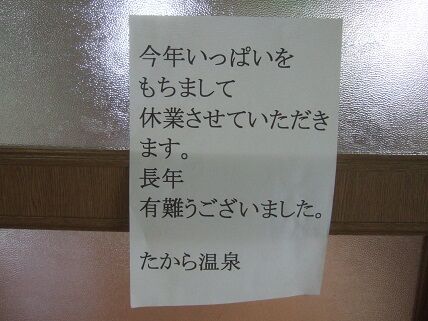 今年いっぱいを
もちまして
休業させていただき
ます。
長年
有難うございました。
たから温泉